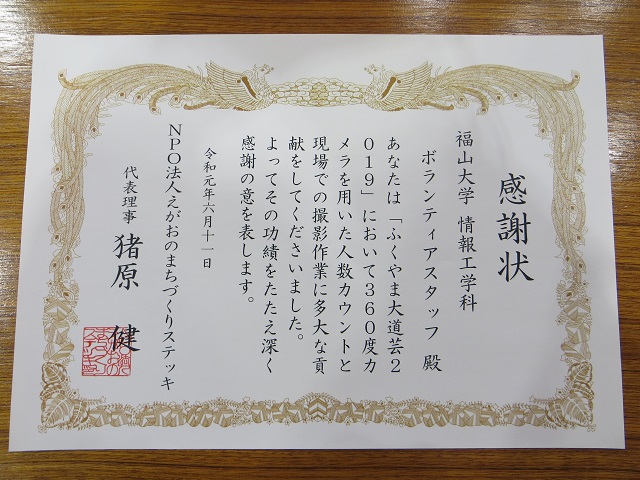 感謝状
福山大学 情報工学科
ボランティアスタッフ 殿
あなたは「ふくやま大道芸2
019」において360度カ
メラを用いた人数カウントと
現場での撮影作業に多大な貢
献をしてくださいました。
よってその功績をたたえ深く
感謝の意を表します。
令和元年六月十一日
NPO法人えがおのまちづくりステッキ
代表理事 猪原 健